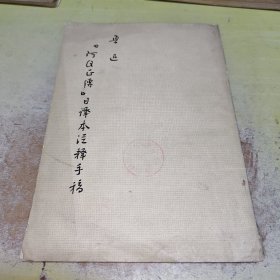 鲁迅
『阿Q正传』日译本注释手稿